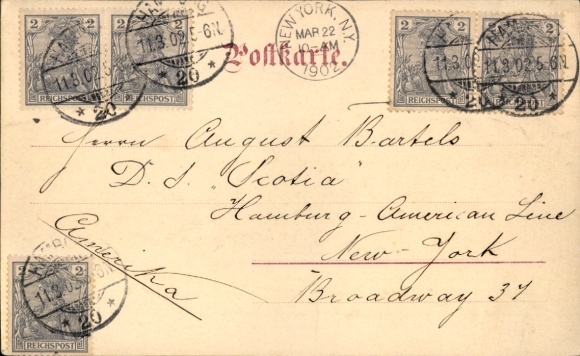 2 2 2 2
REICHSPOST REICHSPOST
11.3.02.5-6N.
* 20 *
NEW YORK, N.Y.
MAR 22
10-AM
1902
2 2 2 2
REICHSPOST REICHSPOST
11.3.02.5-6N.
* 20 *
Postkarte.
Herrn August Bartels
D. S. „Scotia"
Hamburg-American Line
New-York
Broadway 37
Amerika
2 2
REICHSPOST
* 20 *